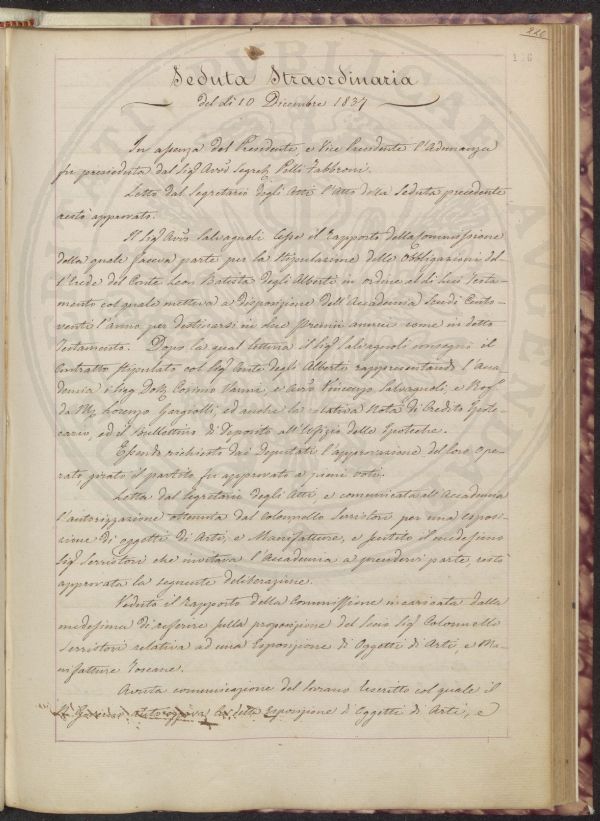 226
116
Seduta Straordinaria
del dì 10 Dicembre 1837
In assenza del Presidente, e Vice Presidente l'Adunanza
fu presieduta dal Sig.r Avv.o Segret. Pelli Fabbroni.
Letto dal Segretario degli Atti l'Atto della Seduta precedente
restò approvato.
Il Sig.r Avv.o Salvagnoli lesse il Rapporto della Commissione
della quale faceva parte per la stipulazione delle Obbligazioni del-
l'Erede del Conte Leon Batista degli Alberti in ordine al di lui Testa-
mento col quale metteva a disposizione dell'Accademia Scudi Cento-
venti l'anno per destinarsi in due premii annui come in detto
Testamento. Dopo la qual lettura il Sig.r Salvagnoli consegnò il
Contratto stipulato col Sig.r Conte degli Alberti rappresentando l'Acca-
demia i Sigg. Dott. Cosimo Vanni, Avv.o Vincenzo Salvagnoli, e Prof.
Lorenzo Gargiolli, ed anche la relativa Nota di Credito Ipote-
cario, ed il Bullettino di Deposito all'Ufizio delle Ipoteche.
Essendo richiesto dai Deputati l'approvazione del loro ope-
rato, girato il partito fu approvato a pieni voti.
Letta dal Segretario degli Atti, e comunicata all'Accademia
l'autorizzazione ottenuta dal Colonnello Serristori per una esposi-
zione di oggetti di Arti, e Manifatture, e sentito il medesimo
Sig.r Serristori che invitava l'Accademia a prendervi parte, restò
approvata la seguente deliberazione.
Veduto il Rapporto della Commissione incaricata dalla
medesima di referire sulla proposizione del Socio Sig.r Colonnello
Serristori relativa ad una Esposizione di Oggetti di Arti, e Ma-
nifatture Toscane.
Avuta comunicazione del Sovrano Rescritto col quale il
R. Governo autorizzava la detta Esposizione di Oggetti di Arti, e